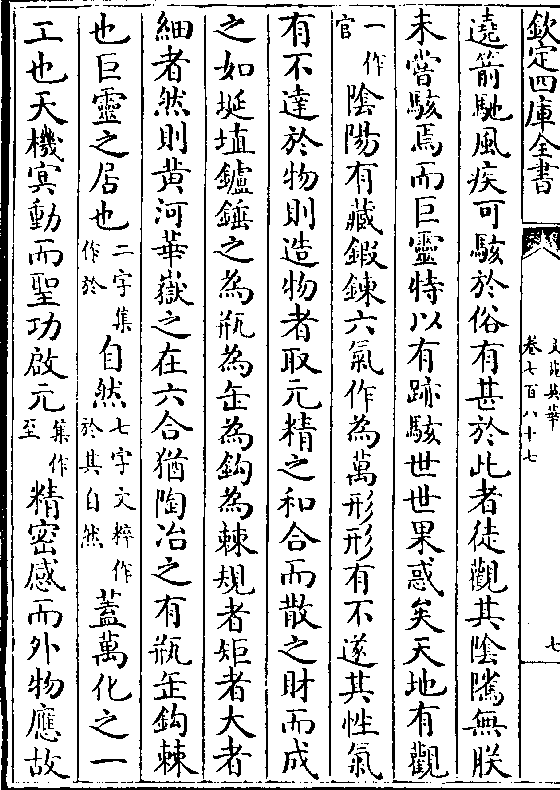 欽定四庫全書
文苑英華
卷七百八十七
七
遶箭馳風疾可駭於俗有甚於此者徒觀其陰騭無朕
未嘗駭焉而巨靈特以有跡駭世世果惑矣天地有觀
一作官陰陽有藏鍜鍊六氣作為萬形形有不遂其性氣
有不達於物則造物者取元精之和合而散之財而成
之如埏埴鑪錘之為瓶為缶為鈎為棘規者矩者大者
細者然則黄河華嶽之在六合猶陶冶之有瓶缶鈎棘
也巨靈之居也二字集作於自然七字文粹作於其自然蓋萬化之一
工也天機冥動而聖功啟元集作至精密感而外物應故